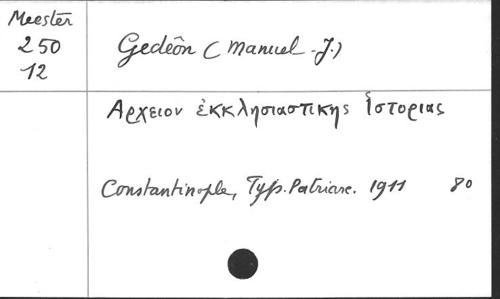 Meester
250
12
Gedéôn (Manuel-J.)
Αρχειον ἐκκλησιαστικης Ἱστοριας
Constantinople, Typ. Patriarc. 1911 80